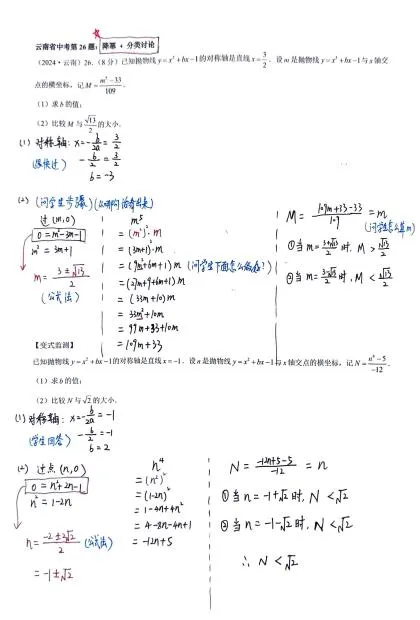 云南省中考第 26 题:降幂 + 分类讨论
(2024·云南) 26. (8 分) 已知抛物线 y=x²+bx-1 的对称轴是直线 x=3/2. 设 m 是抛物线 y=x²+bx-1 与 x 轴交
点的横坐标,记 M=(m⁵-33)/109.
(1) 求 b 的值;
(2) 比较 M 与 √13/2 的大小.
(1) 对称轴: x=-b/2a=3/2
-b/2=3/2
b=-3
(2) (问学生步骤)
过(m,0)
0=m²-3m-1
m²=3m+1
m=(3±√13)/2
(公式法)
m⁵
=(m²)²·m
=(3m+1)²·m
=(9m²+6m+1)m (问学生下面怎么做?)
=(27m+9+6m+1)m
=(33m+10)m
=33m²+10m
=99m+33+10m
=109m+33
M=(109m+33-33)/109=m
①当m=(3+√13)/2时, M>√13/2
②当m=(3-√13)/2时, M<√13/2
【变式监测】
已知抛物线 y=x²+bx-1 的对称轴是直线 x=-1. 设 n 是抛物线 y=x²+bx-1 与 x 轴交点的横坐标,记 N=(n⁴-5)/-12.
(1) 求 b 的值;
(2) 比较 N 与 √2 的大小.
(1) 对称轴: x=-b/2a=-1
(学生回答) -b/2=-1
b=2
(2) 过点(n,0)
0=n²+2n-1
n²=1-2n
n=(-2±2√2)/2 (公式法)
=-1±√2
n⁴
=(n²)²
=(1-2n)²
=1-4n+4n²
=4-8n-4n+1
=-12n+5
N=(-12n+5-5)/-12=n
①当n=-1+√2时, N<√2
②当n=-1-√2时, N<√2
∴ N<√2